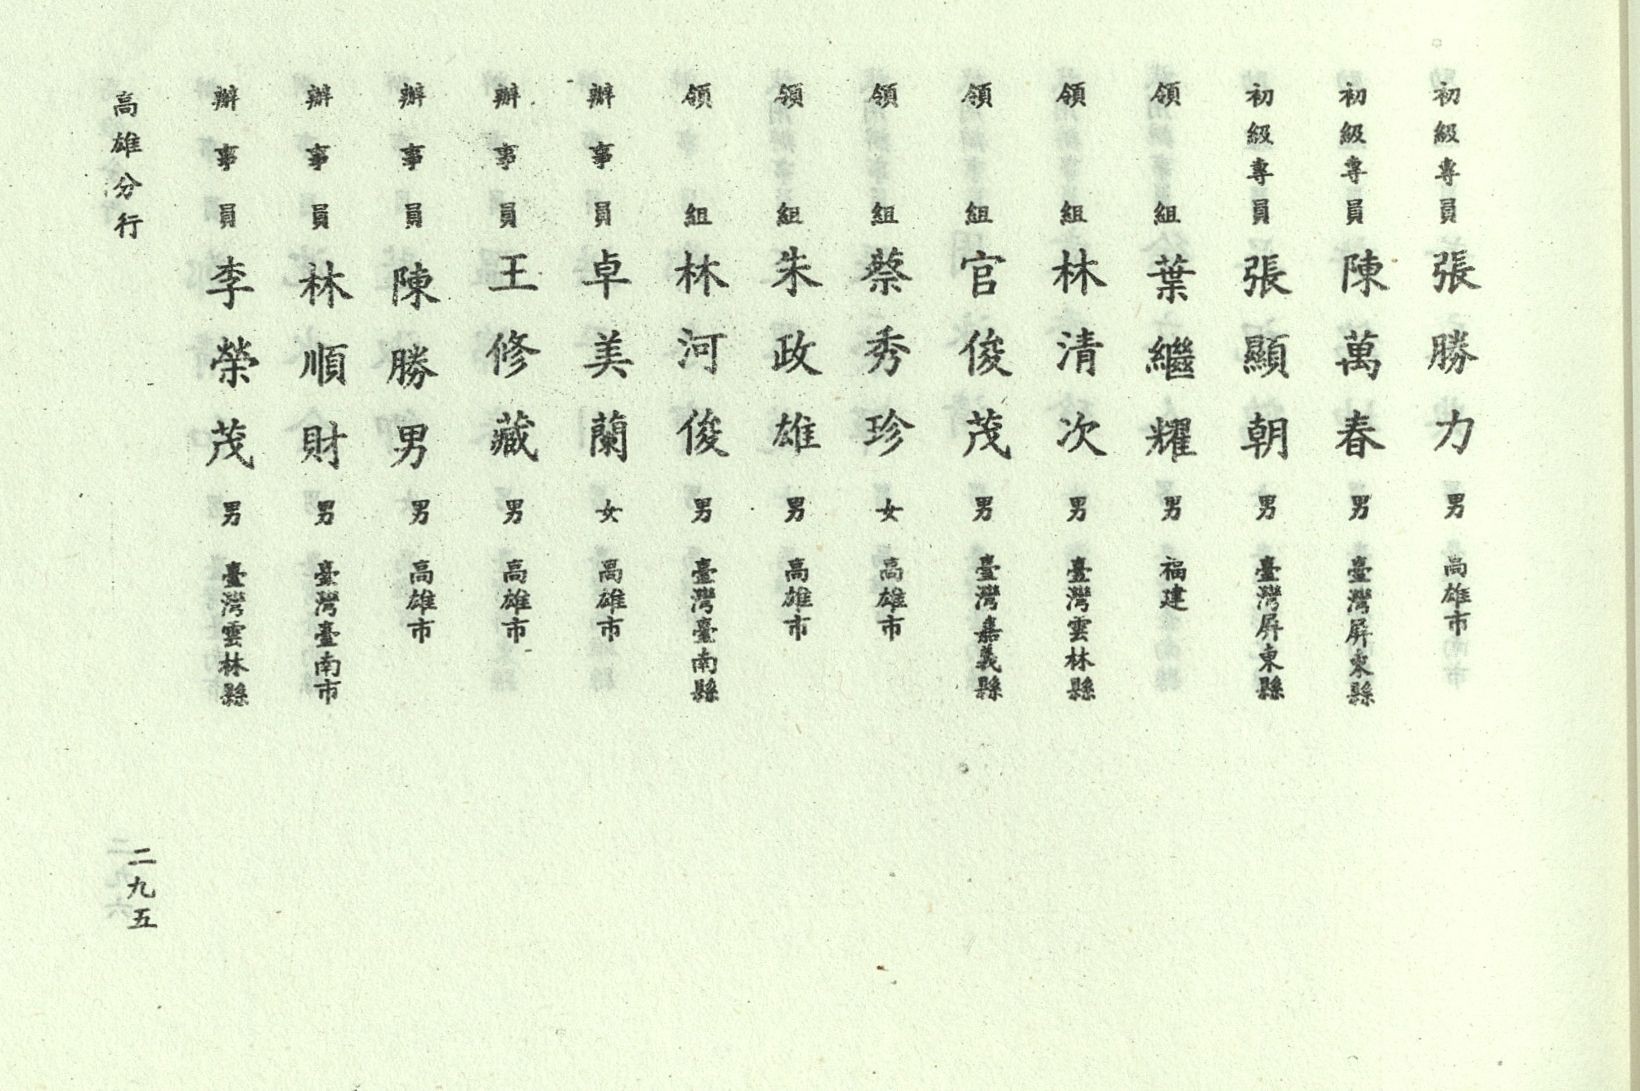 初級專員張勝力男高雄市
初級專員陳萬春男臺灣屏東縣
初級專員張顯朝男臺灣屏東縣
領組葉繼耀男福建
領組林清次男臺灣雲林縣
領組官俊茂男臺灣嘉義縣
領組蔡秀珍女高雄市
領組朱政雄男高雄市
領組林河俊男臺灣臺南縣
辦事員卓美蘭女高雄市
辦事員王修藏男高雄市
辦事員陳勝男男高雄市
辦事員林順財男臺灣臺南市
辦事員李榮茂男臺灣雲林縣
高雄分行
二九五